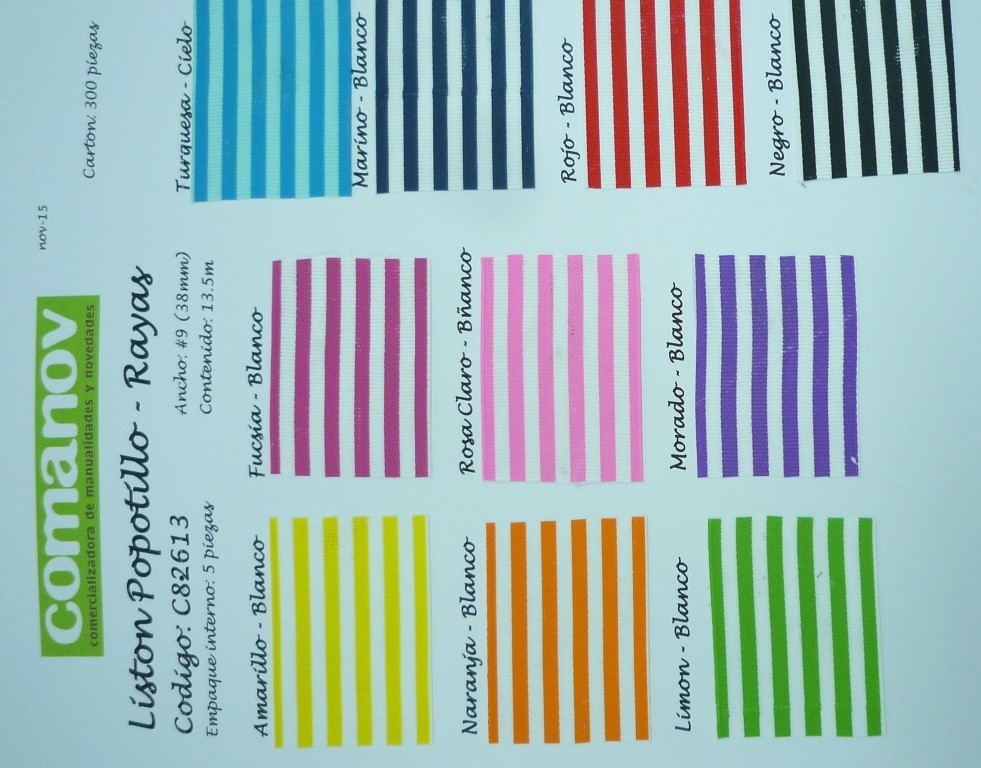 comanov
comercializadora de manualidades y novedades
nov-15
Liston Popotillo - Rayas
Codigo: C82613
Ancho: #9 (38mm)
Carton: 300 piezas
Empaque interno: 5 piezas
Contenido: 13.5m
Amarillo - Blanco
Fucsia - Blanco
Turquesa - Cielo
Marino - Blanco
Naranja - Blanco
Rosa Claro - Bñanco
Rojo - Blanco
Limon - Blanco
Morado - Blanco
Negro - Blanco